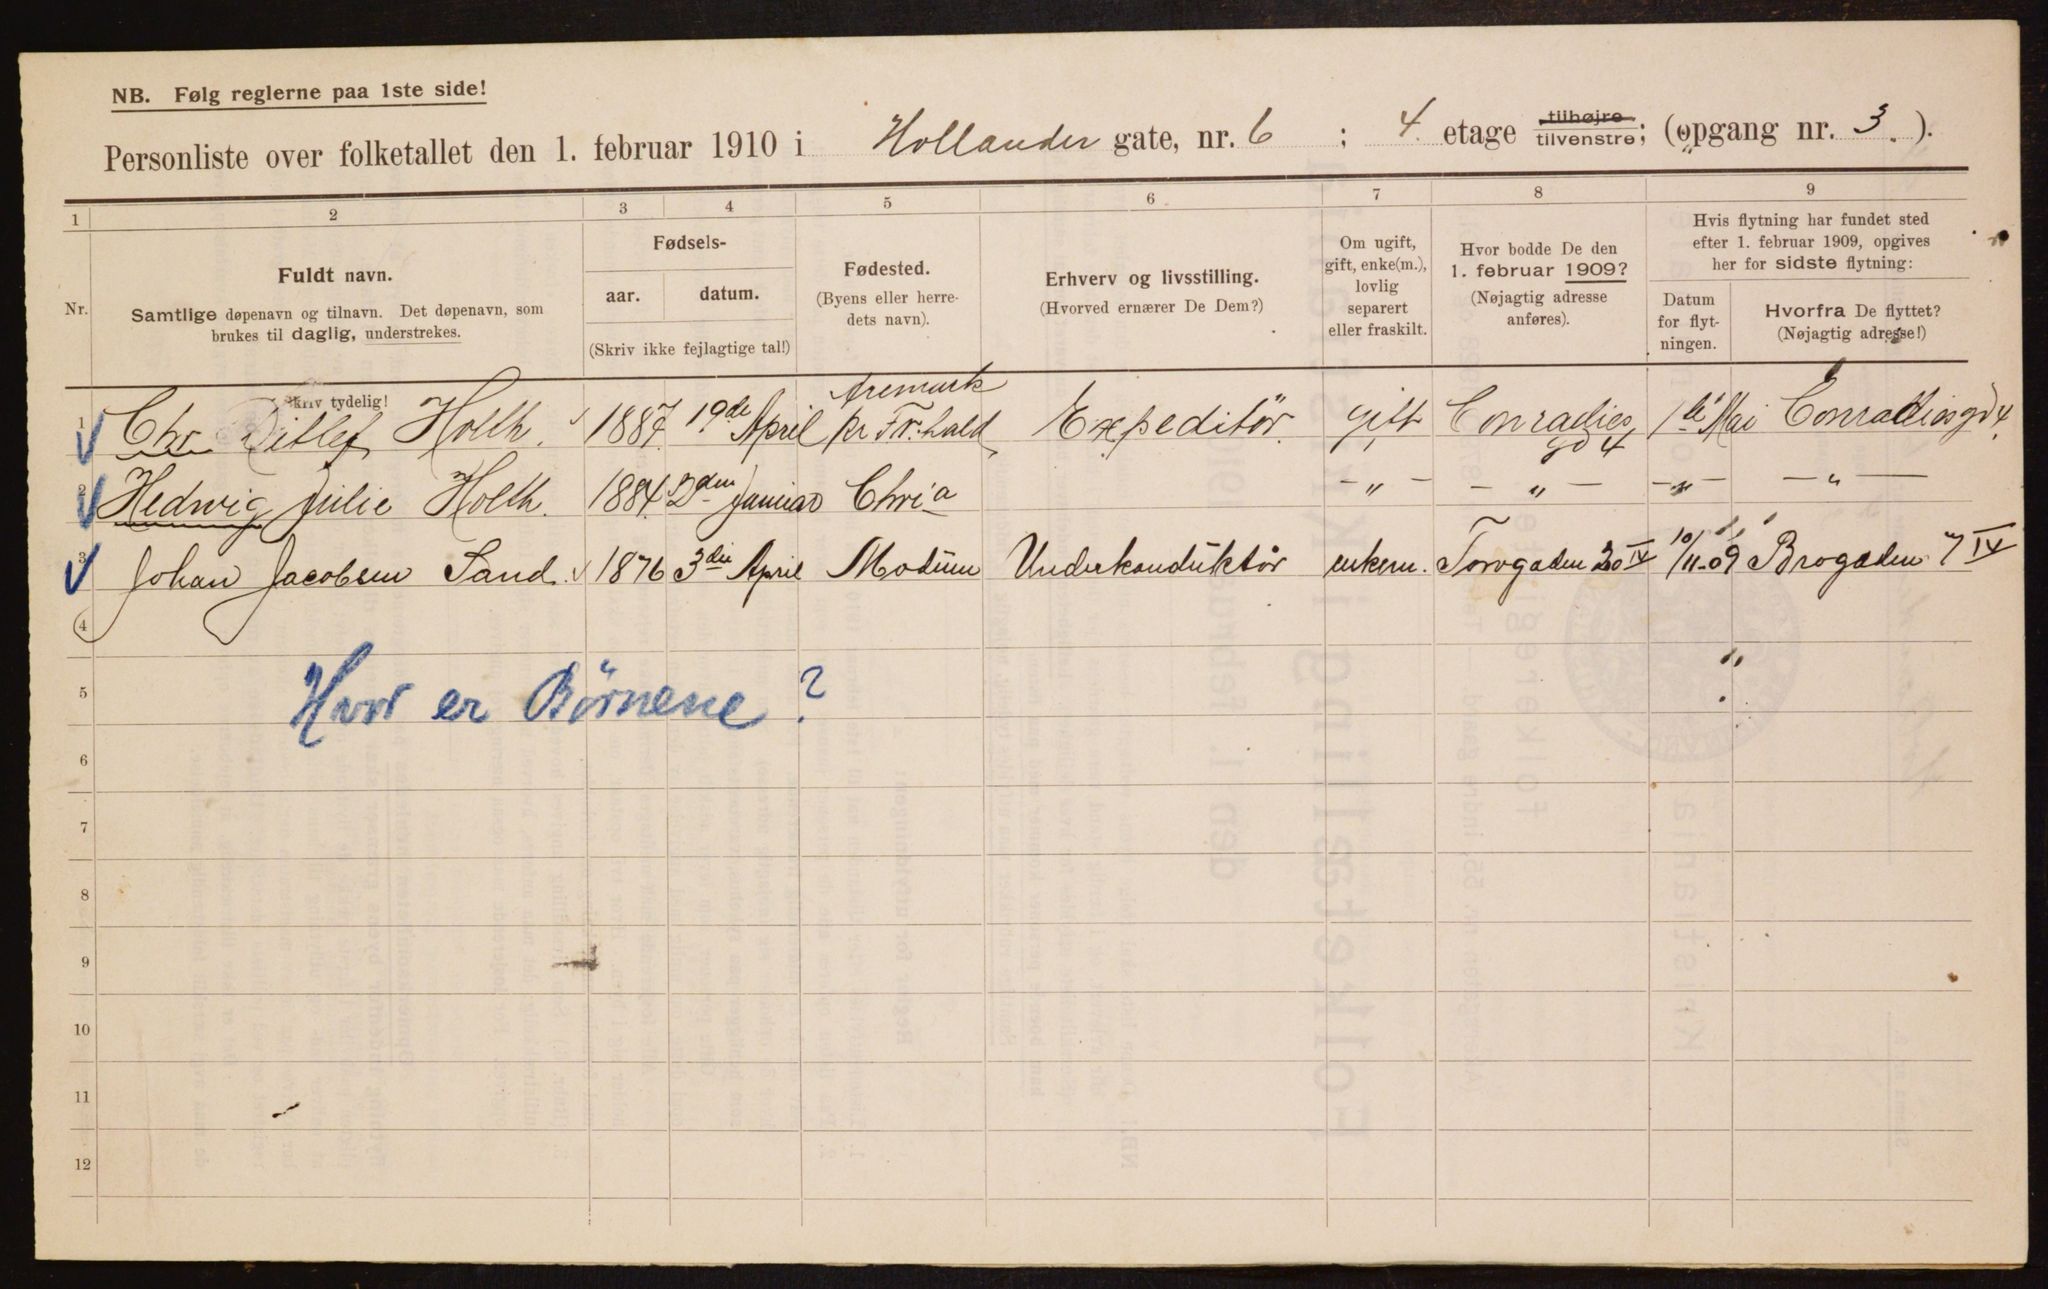 NB. Følg reglerne paa 1ste side!
Personliste over folketallet den 1. februar 1910 i Hollander gate, nr. 6 ; 4. etage tilhøjre tilvenstre; (opgang nr. 3. ).
1 2 3 4 5 6 7 8 9
Nr.
Fuldt navn.
Samtlige døpenavn og tilnavn. Det døpenavn, som
brukes til daglig, understrekes.
Fødsels-
aar. datum.
(Skriv ikke fejlagtige tal!)
Fødested.
(Byens eller herre-
dets navn).
Erhverv og livsstilling.
(Hvorved ernærer De Dem?)
Om ugift,
gift, enke(m.),
lovlig
separert
eller fraskilt.
Hvor bodde De den
1. februar 1909?
(Nøjagtig adresse
anføres).
Hvis flytning har fundet sted
efter 1. februar 1909, opgives
her for sidste flytning:
Datum
for flyt-
ningen.
Hvorfra De flyttet?
(Nøjagtig adresse!)
Skriv tydelig!
1 Chr. Ditlef Holth. 1887 19de April Aremark pr Fr.hald Expeditör. gift Conradies gd 4 1ste Mai Conradiesgd 4.
2 Hedwig Julie Holth. 1884. 2den Januar Chria - " - - " - - " - - " -
3 Johan Jacobsen Sand. 1876 3die April Modum Underkonduktør enkem. Torvgaden 20 IV 10/11-09 Brogaden 7 IV
4
5 Hvor er Børnene?
6
7
8
9
10
11
12